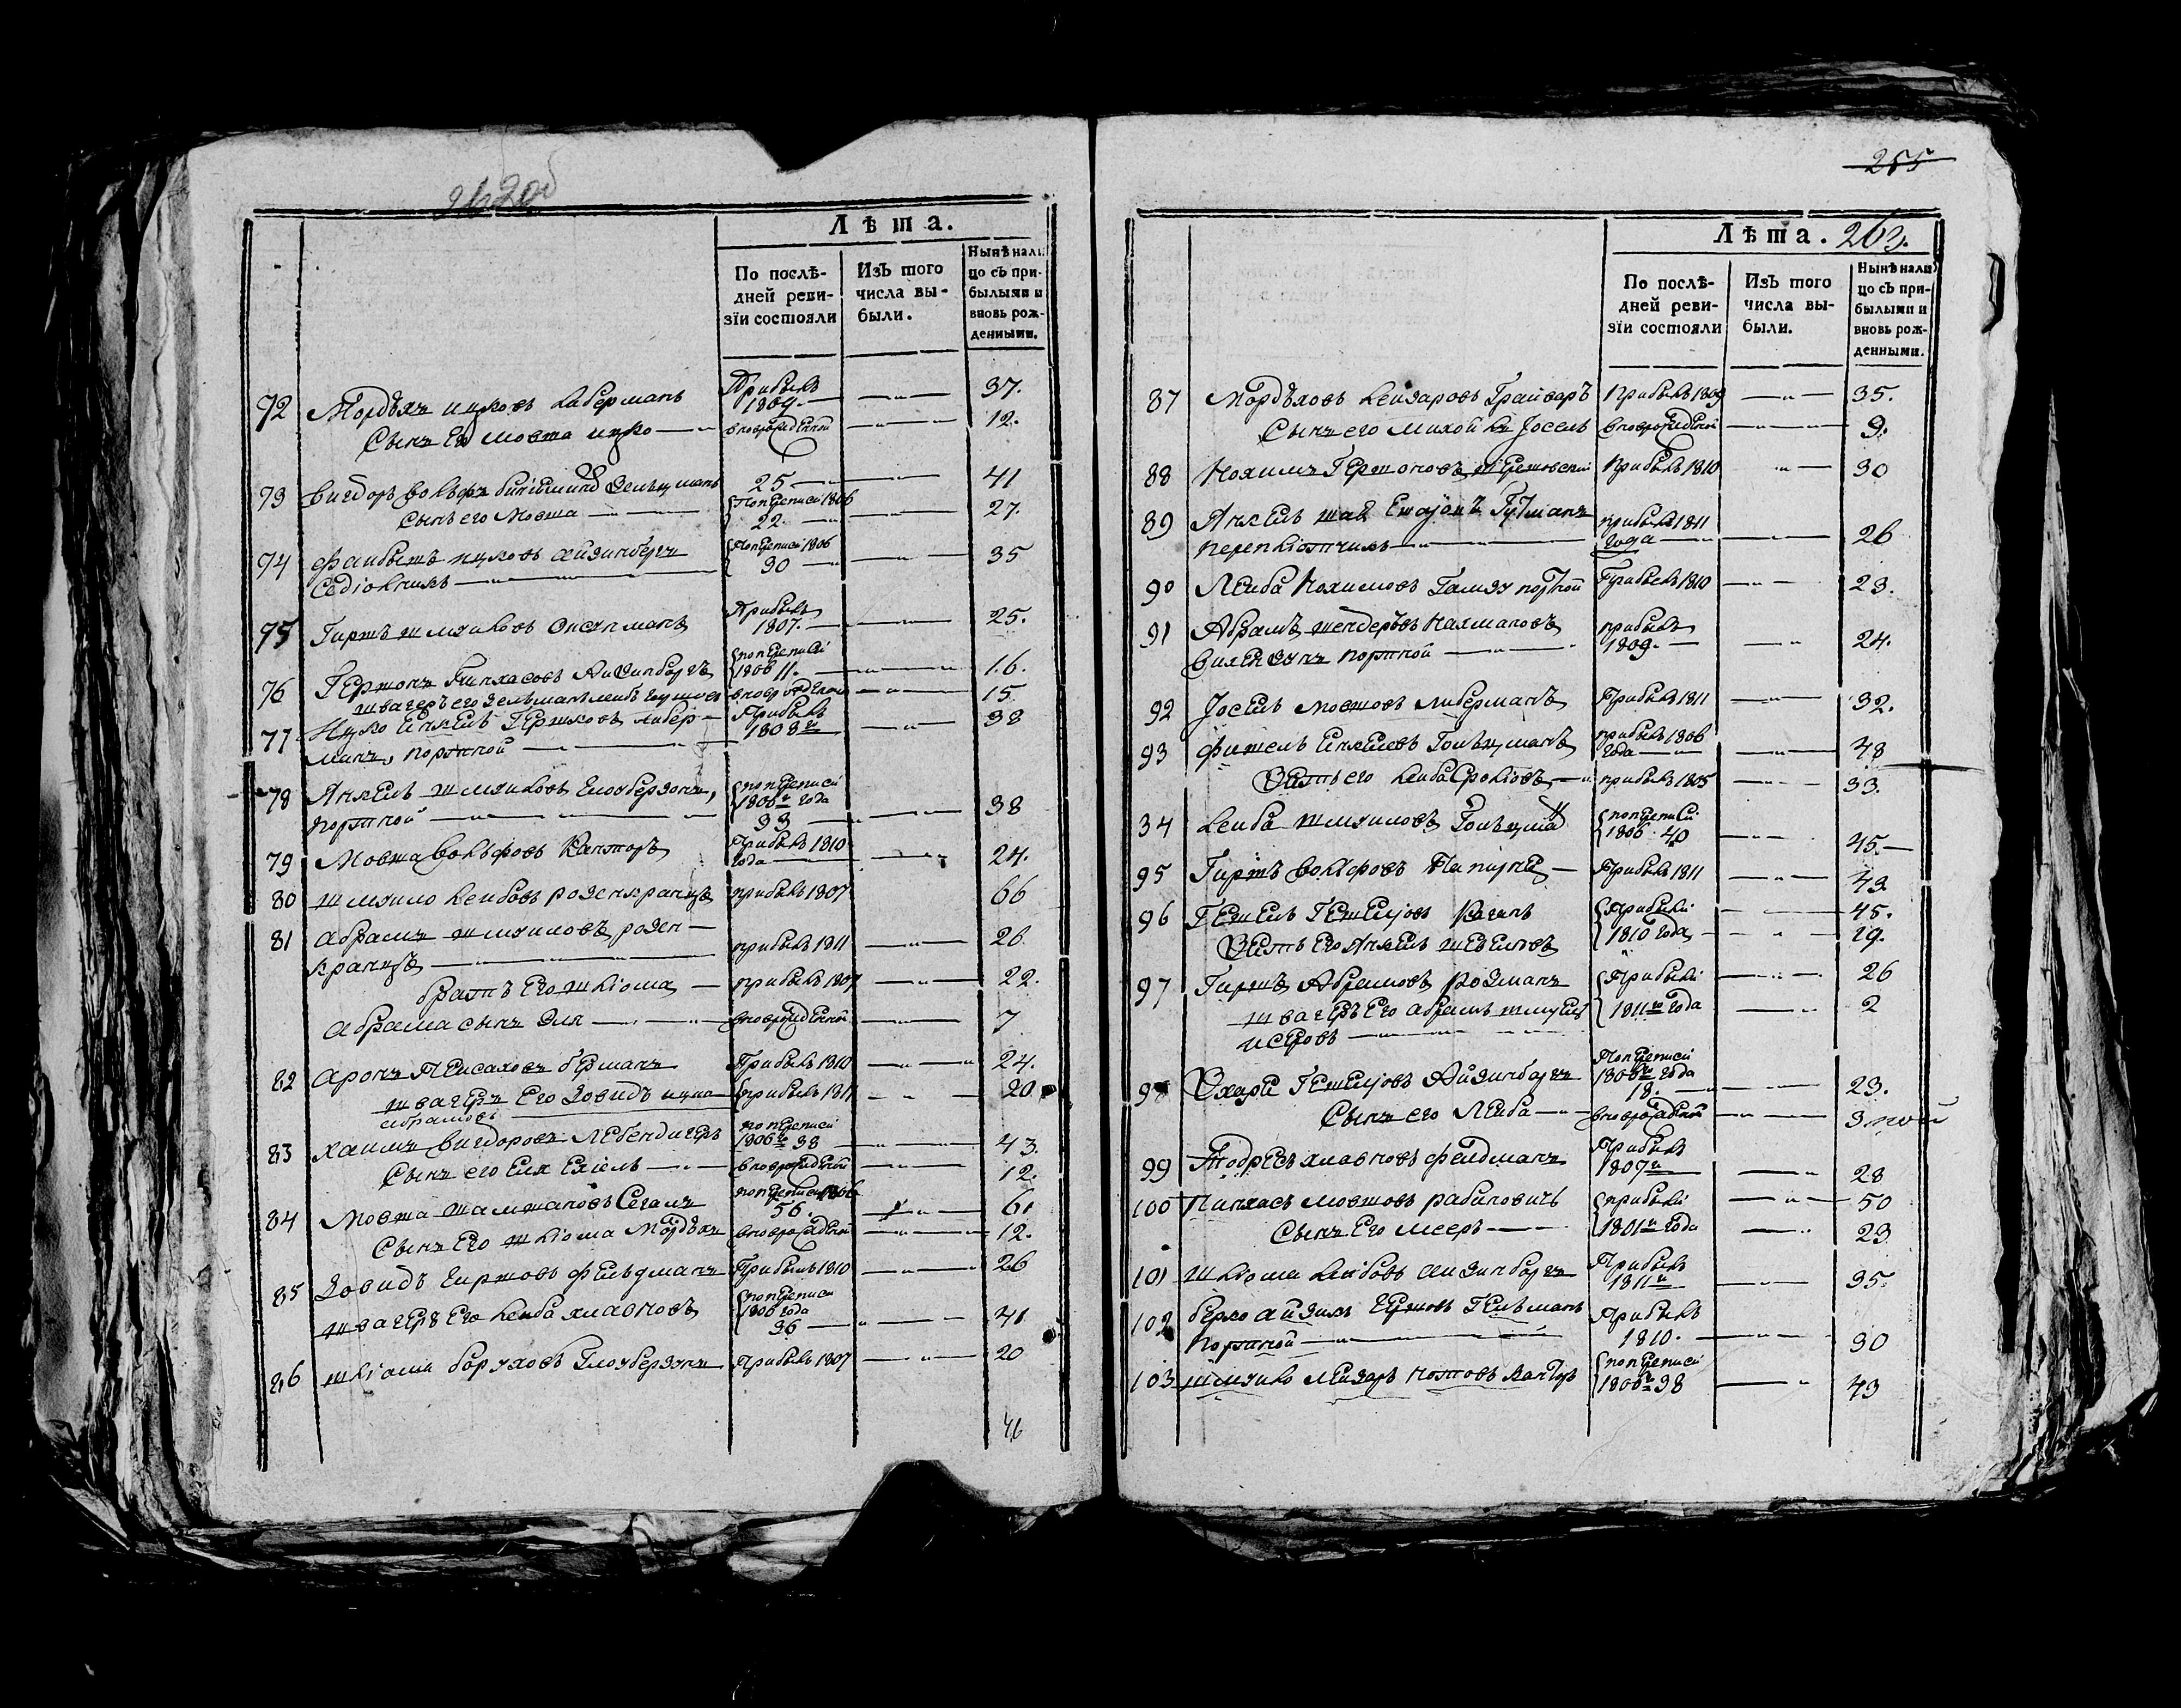 262об
Лѣта.
По послѣ-
дней реви-
зїи состояли
Изъ того
числа вы-
были.
Нынѣ нали
цо съ при-
былыми и
вновь рож-
денными.
72 Мордѣхъ ицковъ Либерманъ Прибылъ 1809. 37.
Сынъ Его мовша ицко вноврожденой 12.
73 Вигдоръ Вольфъ Зельцманъ 25 41
Сынъ его Мовша По переписи 1806 22. 27.
74 Файвышъ ицковъ айзинбергъ По переписи 1806 30 35
75 Гиршъ шмуйловъ Прибылъ 1807. 25.
76 Гершонъ Пинхасовъ Айзинбергъ по переписи 1806 11. 16.
швагеръ его Зельманъ вноврожденой 15
77 Ицко Янкель Гершковъ либер- Прибылъ 1808го 38
манъ, портной
78 Янкель шмуйловъ Глозберзонъ, по переписи 1806го года 33 38
портной
79 Мовша Вольфовъ Канторъ Прибылъ 1810 года 24.
80 шмуйло Лейбовъ розенкранцъ прибылъ 1807 66
81 абрамъ шмуйловъ розен- прибылъ 1811 26
кранцъ
братъ Его шліома прибылъ 1807 22.
абрама сынъ Эля вноврожденой 7
82 аронъ Пейсаховъ берманъ Прибылъ 1810 24.
швагеръ Его Довидъ ицко прибылъ 1811 20
абрамовъ
83 хаимъ вигдоровъ Лебендигеръ по переписи 1806го 38 43.
Сынъ его Еля Ехіель вноврожденой 12.
84 Мовша шамшановъ Сегалъ по переписи 1806 56. 61
Сынъ Его шліома Мордѣхъ вноврожденой 12.
85 Довидъ Гиршовъ фельдманъ Прибылъ 1810 26
швагеръ Его Лейба хлавновъ по переписи 1806 года 36 41
86 шліома боруховъ Глозберзонъ Прибылъ 1807 20
46
255
263.
Лѣта.
По послѣ-
дней реви-
зїи состояли
Изъ того
числа вы-
были.
Нынѣ нали
цо съ при-
былыми и
вновь рож-
денными.
87 Мордѣховъ Лейзаровъ Грайваръ Прибылъ 1809 35.
Сынъ его Михойлъ Іосель вноврожденой 9.
88 Нохимъ Гершоновъ Прибылъ 1810 30
89 Янкель Гутманъ прибылъ 1811 года 26
переплiотчикъ
90 Лейба Нохимовъ портной Прибылъ 1810 23.
91 Абрамъ шендеровъ Нахмановъ прибылъ 1809. 24.
портной
92 Іосель мовшовъ либерманъ Прибылъ 1811 32.
93 фишель Янкелевъ Гольцманъ прибылъ 1806 года 48
Зять его Лейба Сроліовъ прибылъ 1805 33.
94 Лейба шмуйловъ Гольцманъ по переписи 1806 40 45.
95 Гиршъ Вольфовъ Прибылъ 1811 43
96 Гешель Гешеліовъ Каганъ Прибыли 1810 года 45.
Зять Его Янкель 19.
97 Гиршъ Абрамовъ Розманъ Прибыли 1811го года 26
швагеръ Его абрамъ шмуель 2
исеровъ
98 Охари Гешеліовъ Айзинбергъ По переписи 1806го года 18. 23.
Сынъ его Лейба вноврожденой 3
99 Тодресъ хлавновъ фельдманъ Прибылъ 1807го 28
100 Пинхасъ мовшовъ рабиновичъ прибыли 1801го года 50
Сынъ Его мееръ 23
101 шліома Лейбовъ айзинбергъ Прибылъ 1811го 35
102 берко айзикъ Гершовъ Гельманъ Прибылъ 1810. 30
портной
103 шмуйло Лейзаръ Нотовъ Канторъ по переписи 1806го 38 43